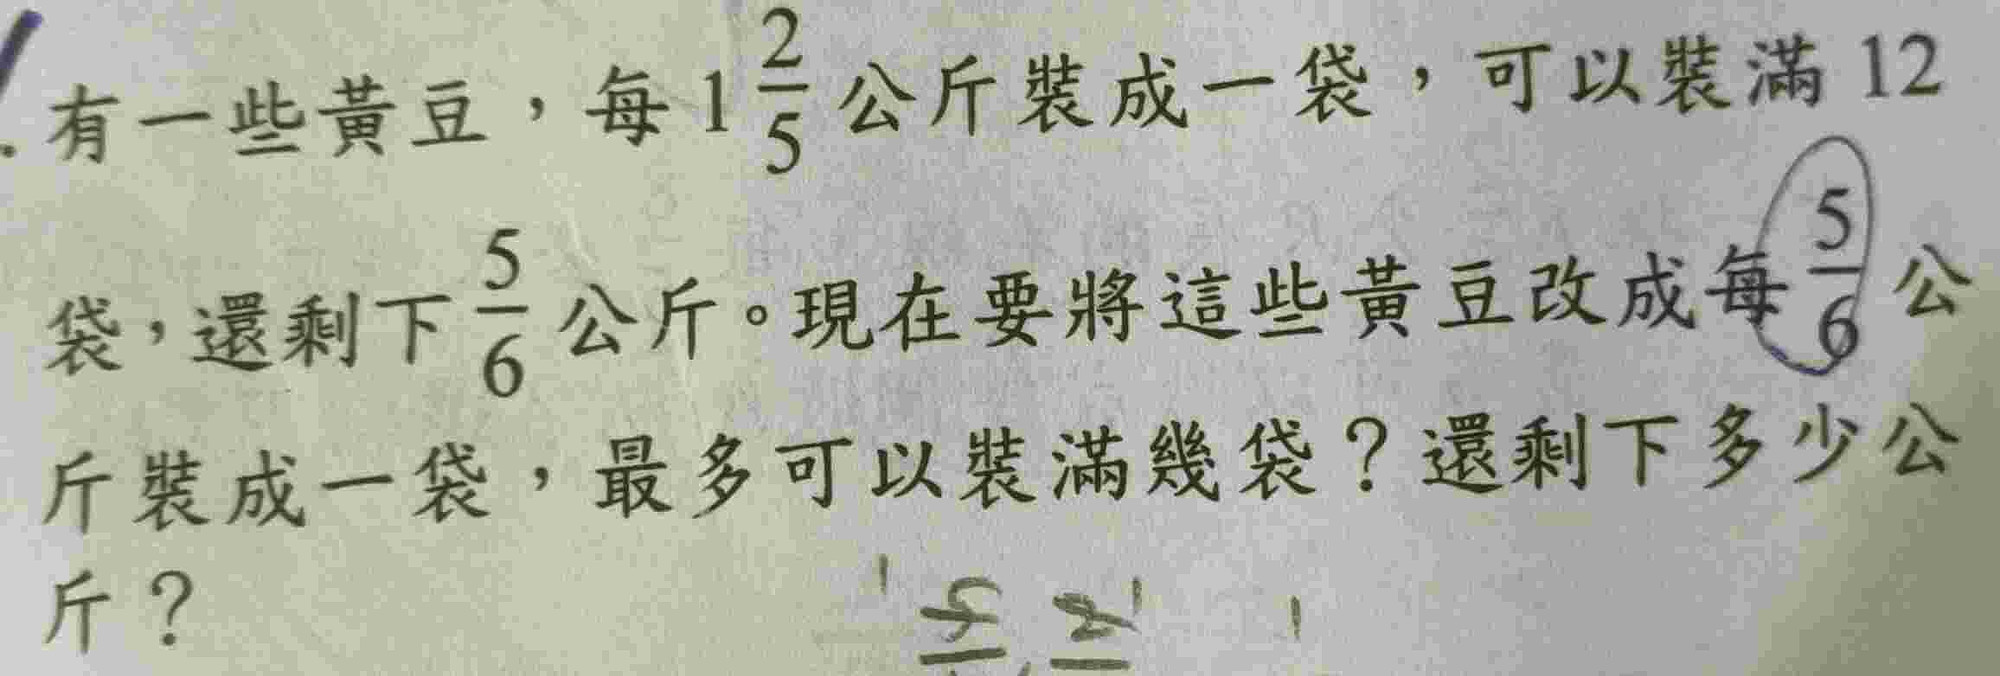 有一些黃豆，每 1 2/5 公斤裝成一袋，可以裝滿 12
袋，還剩下 5/6 公斤。現在要將這些黃豆改成每 5/6 公
斤裝成一袋，最多可以裝滿幾袋？還剩下多少公
斤？